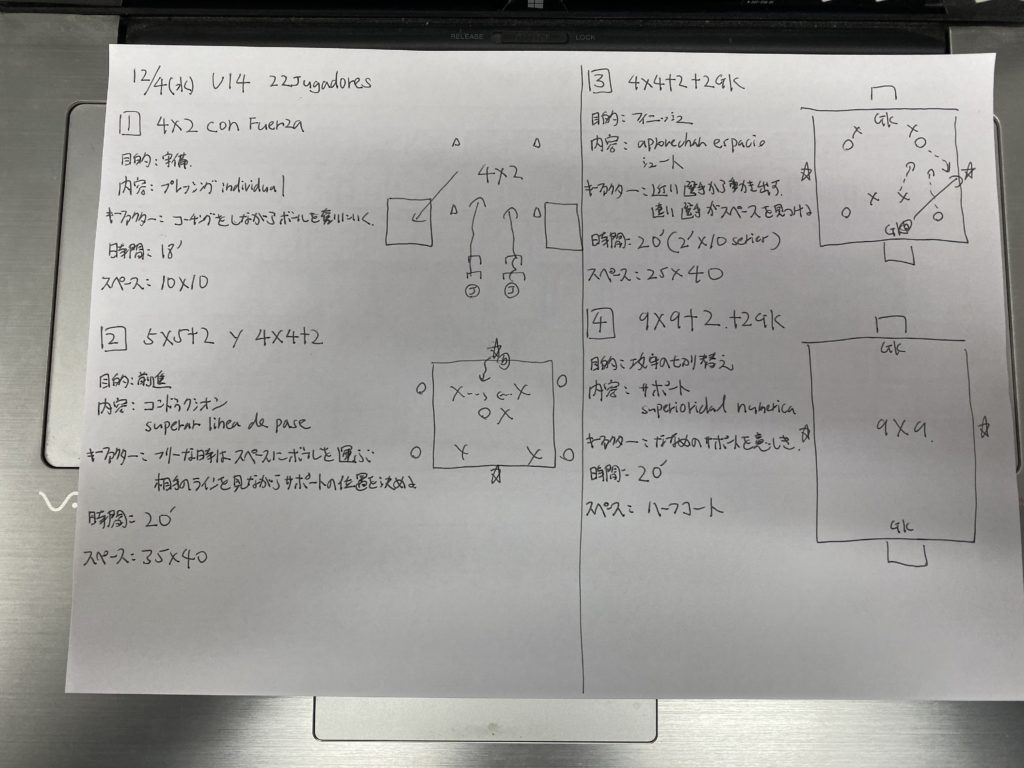 12/4(水) U14 22Jugadores
1 4×2 con Fuerza
目的: 守備
内容: プレッシング individual
キーファクター: コーチングをしながらボールを奪いにいく
時間: 18'
スペース: 10×10
4×2
2 5×5+2 y 4×4+2
目的: 前進
内容: コンドゥクシオン
superar linea de pase
キーファクター: フリーな時はスペースにボールを運ぶ
相手のラインを見ながらサポートの位置を決める
時間: 20'
スペース: 35×40
3 4×4+2+2GK
目的: フィニッシュ
内容: aprovechar espacio
シュート
キーファクター: 近い選手から動き出す
遠い選手がスペースを見つける
時間: 20' (2'×10 series)
スペース: 25×40
GK
GK
4 9×9+2.+2GK
目的: 攻守の切り替え
内容: サポート
superioridad numerica
キーファクター: ななめのサポートを意しき
時間: 20'
スペース: ハーフコート
GK
9×9.
GK
RELEASE LOCK